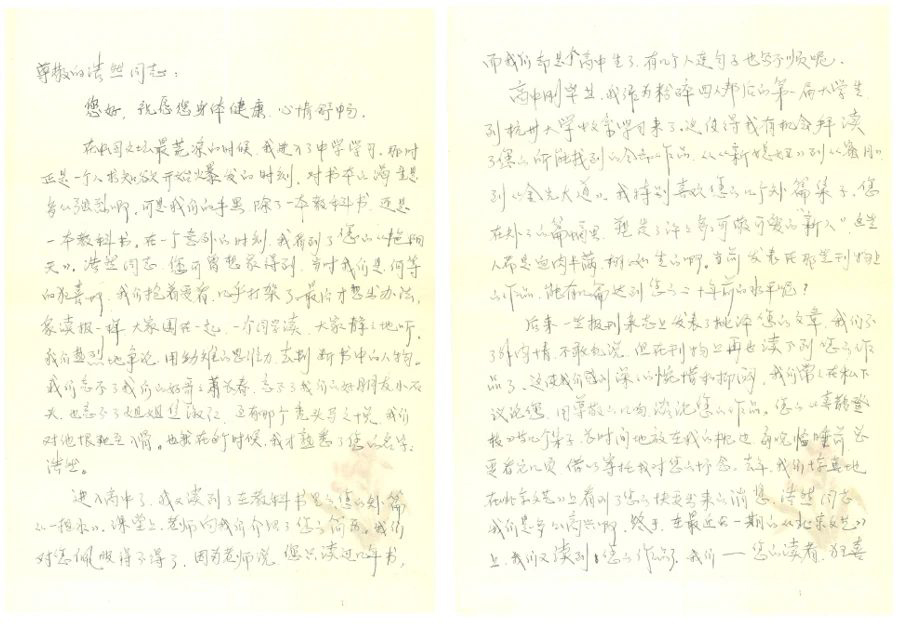 尊敬的浩然同志：
您好，祝愿您身体健康，心情舒畅。
在我国文坛最荒凉的时候，我进入了中学学习。那时
正是一个人求知欲开始爆发的时刻，对书本的渴望是
多么强烈啊，可是我们的手里，除了一本教科书，还是
一本教科书。在一个意外的时刻，我看到了您的《艳阳
天》。浩然同志，您可曾想象得到，当时我们是何等
的狂喜啊，我们抢着要看，几乎打架了，最后才想出办法，
象读报一样，大家围在一起，一个同学读，大家静静地听，
我们热烈地争论，用幼稚的思想力，去判断书中的人物。
我们忘不了我们的好哥哥萧长春，忘不了我们的好朋友小石
头，也忘不了大姐姐焦淑红，还有那个秃头马之悦，我们
对他恨死入骨。也就在那个时候，我才熟悉了您的名字：
浩然。
进入高中了，我又读到了在教科书里的您的短篇
《一担水》。课堂上，老师向我们介绍了您的简历，我们
对您佩服得不得了，因为老师说，您只读过几年书，
而我们都是个高中生了，有几个人连句子也写不顺呢。
高中刚毕业，我作为粉碎四人帮后的第一届大学生
到杭州大学来学习来了。这使得我有机会拜读
了您的所能找到的全部作品，从《新媳妇》到《蜜月》
到《金光大道》。我特别喜欢您的几个短篇集子，您
在短短的篇幅里，塑造了许多可敬可爱的"新人"，这些
人都是血肉丰满，栩栩如生的啊。当前发表在那些刊物上
的作品，能有几篇达到您二十年前的水平呢？
后来一些报刊杂志上发表了批评您的文章，我们不
了解内情，不敢乱说，但在刊物上再也读不到您的作
品了，这使我们感到深深的惋惜和抑闷，我们常常在私下
议论您，用尊敬的口吻，谈论您的作品。您的《喜鹊登
枝》等几个集子，长时间地放在我的枕边，每晚临睡前总
要看它几页，借以寄托我对您的怀念。去年，我们惊喜地
在《北京文艺》上看到了您快要出来的消息，浩然同志
我们是多么高兴啊，终于，在最近的一期的《北京文艺》
上，我们又读到了您的作品，我们——您的读者，狂喜